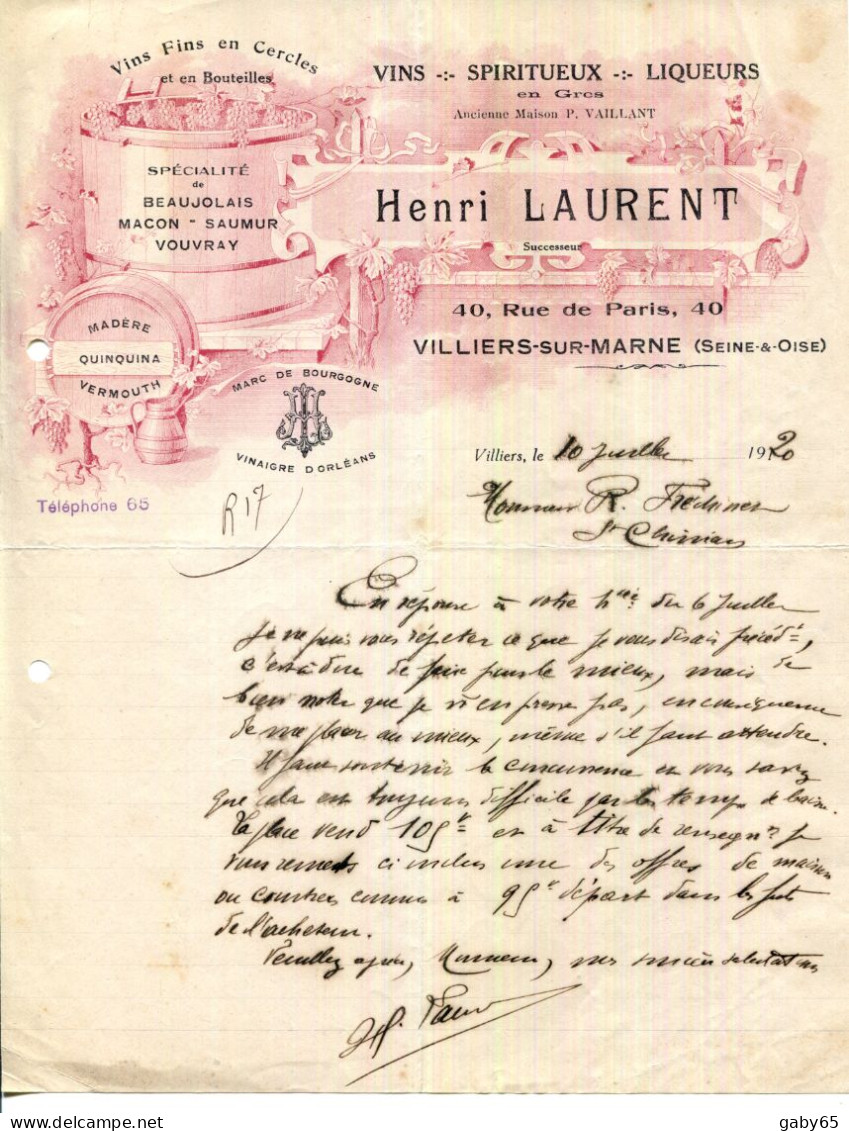 Vins Fins en Cercles
et en Bouteilles
VINS -:- SPIRITUEUX -:- LIQUEURS
en Gros
Ancienne Maison P. VAILLANT
SPÉCIALITÉ
de
BEAUJOLAIS
MACON - SAUMUR
VOUVRAY
Henri LAURENT
Successeur
40, Rue de Paris, 40
VILLIERS-SUR-MARNE (SEINE-&-OISE)
MADÈRE
QUINQUINA
VERMOUTH
MARC DE BOURGOGNE
VINAIGRE D'ORLÉANS
Téléphone 65
R17
Villiers, le 10 Juillet 1920
Monsieur R.
St Chinian
En réponse à votre du 6 Juillet
je ne puis vous répéter ce que je vous disais précédt,
c'est à dire de faire pour le mieux, mais de
bien noter que je n'en presse pas, en conséquence
de me placer au mieux, même s'il faut attendre.
Il faut soutenir la concurrence et vous savez
que cela est toujours difficile par les temps de baisse.
La place vend 105 et à titre de renseignt je
vous remets ci inclus une des offres de maisons
ou courtiers connus à 95 départ dans les futs
de l'acheteur.
Veuillez agréer, Monsieur, mes sincères salutations
H.
gaby65